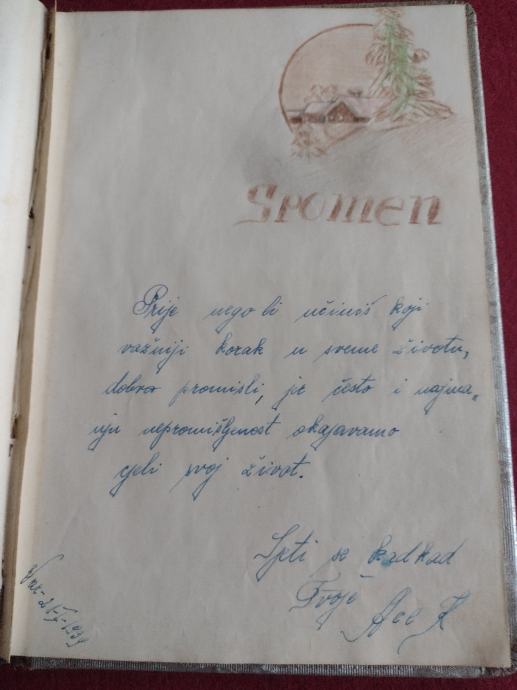 Spomen
Prije nego bi učiniš koji
važniji korak u svome životu,
dobro promisli, jer često i najma-
nju nepromišljenost okajavamo
cijeli svoj život.
Sjeti se kadkad
Tvoje